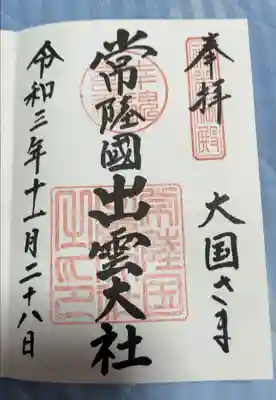 奉拝
大国さま
常陸國出雲大社
令和三年十一月二十八日